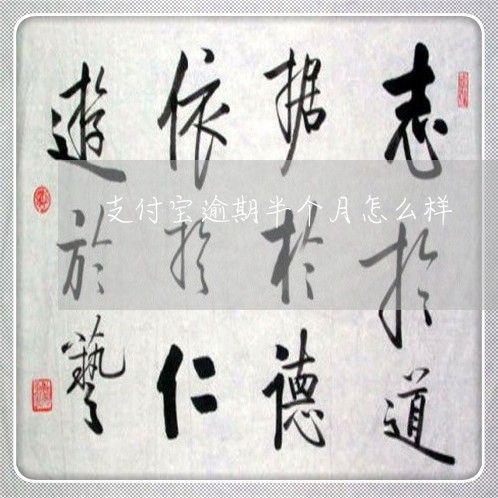 志於道
据於德
依於仁
遊於藝
支付宝逾期半个月怎么样